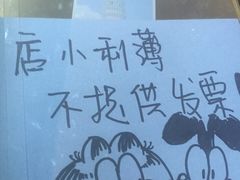 店小利薄
不提供发票